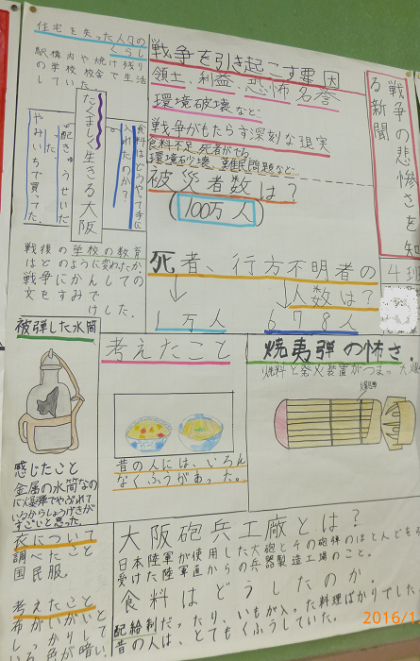 戦争の悲惨さを知
る新聞
4班
戦争を引き起こす要因
領土、利益、恐怖、名誉
環境破壊など
戦争がもたらす深刻な現実
食料不足、死者がでる
環境破壊、難民問題など
被災者数は?
(100万人)
死者、行方不明者の
人数は?
1万人
678人
住宅を失った人々の
くらし
駅構内や焼け残り
の学校校舎で生活
していた
たくましく生きる大阪
食料はどうやって手に
入れたのか?
配きゅうせいだ
った
やみいちで買ってた
戦後の学校の教育
はどのように変わったか
戦争にかんしての
文をすみで
けした。
被弾した水筒
感じたこと
金属の水筒なの
に爆弾でやぶれて
いるからしょうげきが
すごいと思った
考えたこと
昔の人には、いろん
なくふうがあった。
焼夷弾の怖さ
燃料と発火装置がつまった爆
大阪砲兵工廠とは?
日本陸軍が使用した大砲とその砲弾のほとんどを
受けた陸軍直からの兵器製造工場のこと。
食料はどうしたのか.
配給制だったり、いもが入った料理ばかりでした
昔の人は、とてもくふうしていた。
衣について
調べたこと
国民服。
考えたこと
布がいがいと
しっかりして
いる色が暗い
2016/1